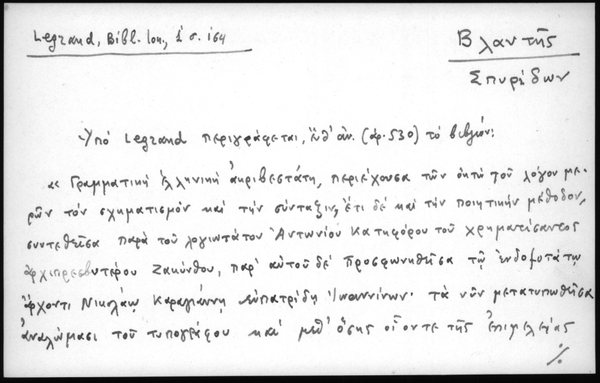 Legrand, Bibl. Ion., 1 σ. 164
Βλαντῆς
Σπυρίδων
Ὑπό Legrand περιγράφεται, ἔνθ' ἀν. (ἀρ. 530) τό βιβλίον:
« Γραμματική ἑλληνική ἀκριβεστάτη, περιέχουσα τῶν ὀκτώ τοῦ λόγου με-
ρῶν τόν σχηματισμόν καί τήν σύνταξιν, ἔτι δέ καί τήν ποιητικήν μέθοδον,
συντεθεῖσα παρά τοῦ λογιωτάτου Ἀντωνίου Κατηφόρου τοῦ χρηματίσαντος
ἀρχιπρεσβυτέρου Ζακύνθου, παρ' αὐτοῦ δέ προσφωνηθεῖσα τῷ ἐνδοξοτάτῳ
ἄρχοντι Νικολάῳ Καραγιάννη εὐπατρίδῃ Ἰωαννίνων· τά νῦν μετατυπωθεῖσα
ἀναλώμασι τοῦ τυπογράφου καί μεθ' ὅσης οἷόν τε τῆς ἐπιμελείας
./.